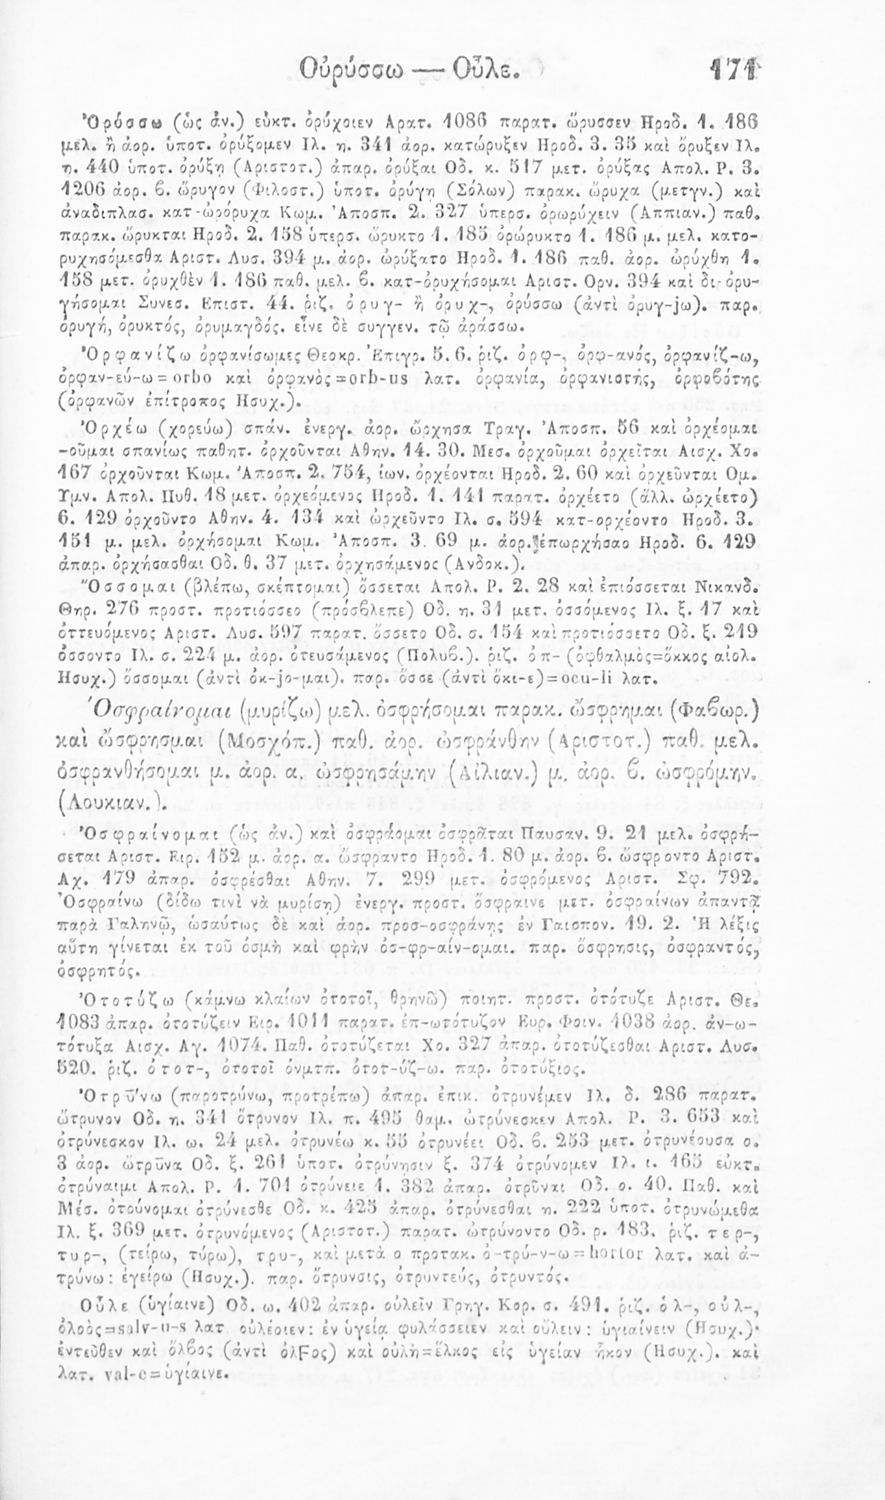 Οὐρύσσω — Οὖλε. 171
Ὀρύσσω (ὡς ἀν.) εὐκτ. ὀρύχοιεν Αρατ. 1086 παρατ. ὤρυσσεν Ηροδ. 1. 186
μελ. ἢ ἀορ. ὑποτ. ὀρύξομεν Ιλ. η. 341 ἀορ. κατώρυξεν Ηροδ. 3. 35 καὶ ὄρυξεν Ιλ.
η. 440 ὑποτ. ὀρύξῃ (Αριστοτ.) ἀπαρ. ὀρύξαι Οδ. κ. 517 μετ. ὀρύξας Απολ. Ρ. 3.
1206 ἀορ. β. ὤρυγον (Φιλοστ.) ὑποτ. ὀρύγῃ (Σόλων) παρακ. ὤρυχα (μετγν.) καὶ
ἀναδιπλασ. κατ-ὠρόρυχα Κωμ. Ἀποσπ. 2. 327 ὑπερσ. ὀρωρύχειν (Αππιαν.) παθ.
παρακ. ὤρυκται Ηροδ. 2. 158 ὑπερσ. ὤρυκτο 1. 185 ὀρώρυκτο 1. 186 μ. μελ. κατο-
ρυχησόμεσθα Αριστ. Λυσ. 394 μ. ἀορ. ὠρύξατο Ηροδ. 1. 186 παθ. ἀορ. ὠρύχθη 1.
158 μετ. ὀρυχθὲν 1. 186 παθ. μελ. β. κατ-ὀρυχήσομαι Αριστ. Ορν. 394 καὶ δι-ὀρυ-
γήσομαι Συνεσ. Επιστ. 44. ῥιζ. ὀρυγ- ἢ ὀρυχ-, ὀρύσσω (ἀντὶ ὀρυγ-jω). παρ.
ὀρυγή, ὀρυκτός, ὀρυμαγδός. εἶνε δὲ συγγεν. τῷ ἀράσσω.
Ὀρφανίζω ὀρφανίσωμες Θεοκρ. Ἐπιγρ. 5. 6. ῥιζ. ὀρφ-, ὀρφ-ανός, ὀρφανίζ-ω,
ὀρφαν-εύ-ω = orbo καὶ ὀρφανὸς = orb-us λατ. ὀρφανία, ὀρφανιστής, ὀρφοβότης
(ὀρφανῶν ἐπίτροπος Ησυχ.).
Ὀρχέω (χορεύω) σπάν. ἐνεργ. ἀορ. ὤρχησα Τραγ. Ἀποσπ. 56 καὶ ὀρχέομαι
-οῦμαι σπανίως παθητ. ὀρχοῦνται Αθην. 14. 30. Μεσ. ὀρχοῦμαι ὀρχεῖται Αισχ. Χο.
167 ὀρχοῦνται Κωμ. Ἀποσπ. 2. 754, ἰων. ὀρχέονται Ηροδ. 2. 60 καὶ ὀρχεῦνται Ομ.
Υμν. Απολ. Πυθ. 18 μετ. ὀρχεόμενος Ηροδ. 1. 141 παρατ. ὀρχέετο (ἄλλ. ὠρχέετο)
6. 129 ὀρχοῦντο Αθην. 4. 134 καὶ ὠρχεῦντο Ιλ. σ. 594 κατ-ορχέοντο Ηροδ. 3.
151 μ. μελ. ὀρχήσομαι Κωμ. Ἀποσπ. 3. 69 μ. ἀορ. ἐπωρχήσαο Ηροδ. 6. 129
ἀπαρ. ὀρχήσασθαι Οδ. θ. 37 μετ. ὀρχησάμενος (Ανδοκ.).
Ὄσσομαι (βλέπω, σκέπτομαι) ὄσσεται Απολ. Ρ. 2. 28 καὶ ἐπιόσσεται Νικανδ.
Θηρ. 276 προστ. προτιόσσεο (πρόσβλεπε) Οδ. η. 31 μετ. ὀσσόμενος Ιλ. ξ. 17 καὶ
ὀττευόμενος Αριστ. Λυσ. 597 παρατ. ὄσσετο Οδ. σ. 154 καὶ προτιόσσετο Οδ. ξ. 219
ὄσσοντο Ιλ. σ. 224 μ. ἀορ. ὀτευσάμενος (Πολυβ.). ῥιζ. ὀπ- (ὀφθαλμὸς=ὄκκος αἰολ.
Ησυχ.) ὄσσομαι (ἀντὶ ὀκ-jo-μαι). παρ. ὄσσε (ἀντὶ ὄκι-ε) = ocu-li λατ.
Ὀσφραίνομαι (μυρίζω) μελ. ὀσφρήσομαι παρακ. ὤσφρημαι (Φαβωρ.)
καὶ ὤσφρησμαι (Μοσχόπ.) παθ. ἀορ. ὠσφράνθην (Αριστοτ.) παθ. μελ.
ὀσφρανθήσομαι μ. ἀορ. α. ὠσφρησάμην (Αἰλιαν.) μ. ἀορ. β. ὠσφρόμην.
(Λουκιαν.).
Ὀσφραίνομαι (ὡς ἀν.) καὶ ὀσφράομαι ὀσφρᾶται Παυσαν. 9. 21 μελ. ὀσφρή-
σεται Αριστ. Ειρ. 152 μ. ἀορ. α. ὤσφραντο Ηροδ. 1. 80 μ. ἀορ. β. ὤσφροντο Αριστ.
Αχ. 179 ἀπαρ. ὀσφρέσθαι Αθην. 7. 299 μετ. ὀσφρόμενος Αριστ. Σφ. 792.
Ὀσφραίνω (δίδω τινὶ νὰ μυρίσῃ) ἐνεργ. προστ. ὄσφραινε μετ. ὀσφραίνων ἀπαντᾷ
παρὰ Γαληνῷ, ὡσαύτως δὲ καὶ ἀορ. προσ-οσφράνῃς ἐν Γαισπον. 19. 2. Ἡ λέξις
αὕτη γίνεται ἐκ τοῦ ὀσμὴ καὶ φρὴν ὀσ-φρ-αίν-ομαι. παρ. ὄσφρησις, ὀσφραντός,
ὀσφρητός.
Ὀτοτύζω (κάμνω κλαίων ὀτοτοῖ, θρηνῶ) ποιητ. προστ. ὀτότυζε Αριστ. Θε.
1083 ἀπαρ. ὀτοτύζειν Ειρ. 1011 παρατ. ἐπ-ωτότυζον Ευρ. Φοιν. 1038 ἀορ. ἀν-ω-
τότυξα Αισχ. Αγ. 1074. Παθ. ὀτοτύζεται Χο. 327 ἀπαρ. ὀτοτύζεσθαι Αριστ. Λυσ.
520. ῥιζ. ὀτοτ-, ὀτοτοῖ ὀνμτπ. ὀτοτ-ύζ-ω. παρ. ὀτοτύξιος.
Ὀτρῡ́νω (παροτρύνω, προτρέπω) ἀπαρ. ἐπικ. ὀτρυνέμεν Ιλ. δ. 286 παρατ.
ὤτρυνον Οδ. η. 341 ὄτρυνον Ιλ. π. 495 θαμ. ὠτρύνεσκεν Απολ. Ρ. 3. 653 καὶ
ὀτρύνεσκον Ιλ. ω. 24 μελ. ὀτρυνέω κ. 55 ὀτρυνέει Οδ. β. 253 μετ. ὀτρυνέουσα ο.
3 ἀορ. ὤτρῡνα Οδ. ξ. 261 ὑποτ. ὀτρύνῃσιν ξ. 374 ὀτρύνομεν Ιλ. ι. 165 εὐκτ.
ὀτρύναιμι Απολ. Ρ. 1. 701 ὀτρύνειε 1. 382 ἀπαρ. ὀτρῦναι Οδ. ο. 40. Παθ. καὶ
Μέσ. ὀτούνομαι ὀτρύνεσθε Οδ. κ. 425 ἀπαρ. ὀτρύνεσθαι η. 222 ὑποτ. ὀτρυνώμεθα
Ιλ. ξ. 369 μετ. ὀτρυνόμενος (Αριστοτ.) παρατ. ὠτρύνοντο Οδ. ρ. 183. ῥιζ. τερ-,
τυρ-, (τείρω, τύρω), τρυ-, καὶ μετὰ ο προτακ. ὀ-τρύ-ν-ω = hortor λατ. καὶ ἀ-
τρύνω: ἐγείρω (Ησυχ.). παρ. ὄτρυνσις, ὀτρυντεύς, ὀτρυντός.
Οὖλε (ὑγίαινε) Οδ. ω. 402 ἀπαρ. οὐλεῖν Γρηγ. Κορ. σ. 491. ῥιζ. ὀλ-, οὐλ-,
ὁλοὸς=salv-u-s λατ οὐλέοιεν: ἐν ὑγείᾳ φυλάσσειεν καὶ οὔλειν: ὑγιαίνειν (Ησυχ.)·
ἐντεῦθεν καὶ ὄλβος (ἀντὶ ὀλϝος) καὶ οὐλὴ=ἕλκος εἰς ὑγείαν ἧκον (Ησυχ.). καὶ
λατ. val-e = ὑγίαινε.